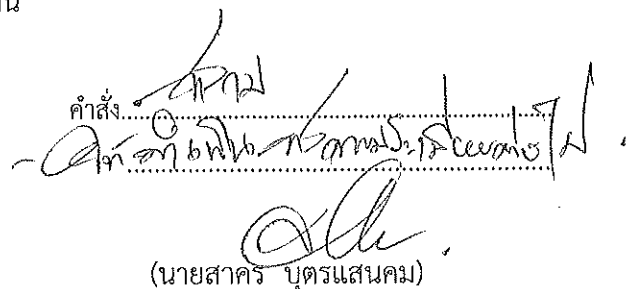 น
คำสั่ง ทราบ
- ให้ดำเนินการตามระเบียบต่อไป
(นายสาคร บุตรแสนคม)